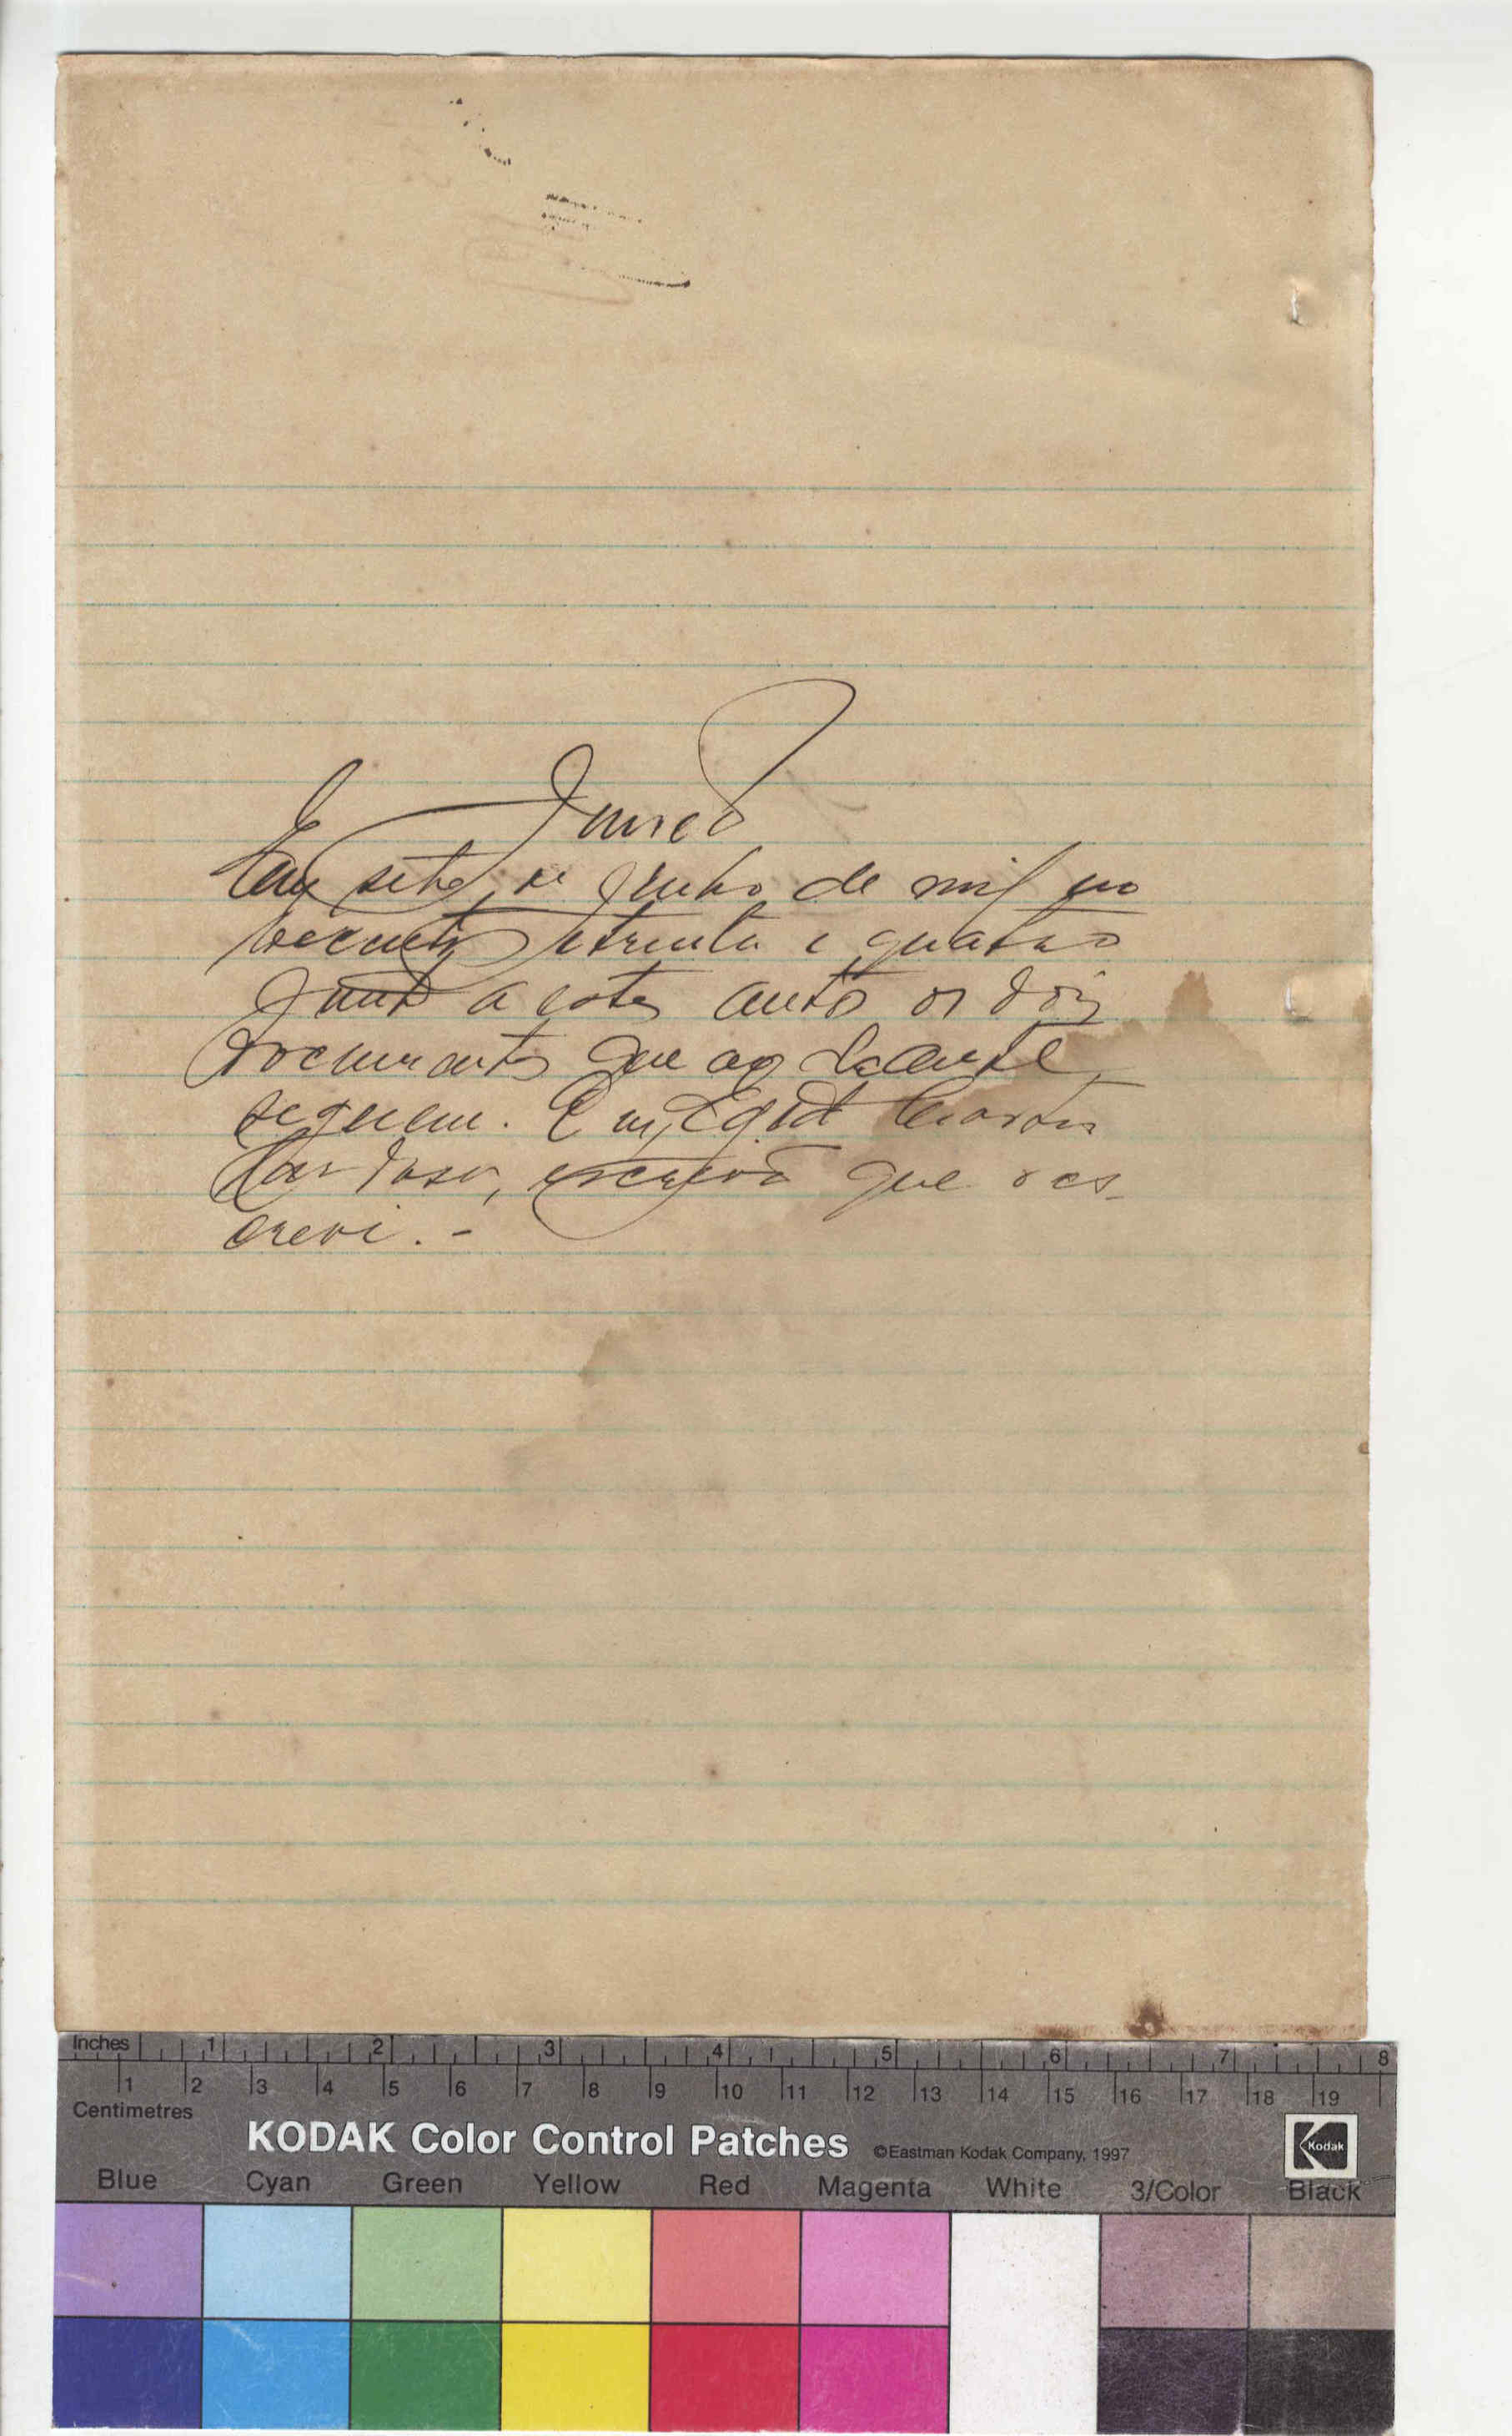 Junto
Em sete de Junho de mil no
vecentos e trinta e quatro
Junto a estes autos os dois
documentos que ao deante
seguem. Eu, Egidt
Cardoso, escrivã que o es-
crevi. -
Inches 1 2 3 4 5 6 7 8
1 2 3 4 5 6 7 8 9 10 11 12 13 14 15 16 17 18 19
Centimetres
KODAK Color Control Patches ©Eastman Kodak Company, 1997 Kodak
Blue Cyan Green Yellow Red Magenta White 3/Color Black